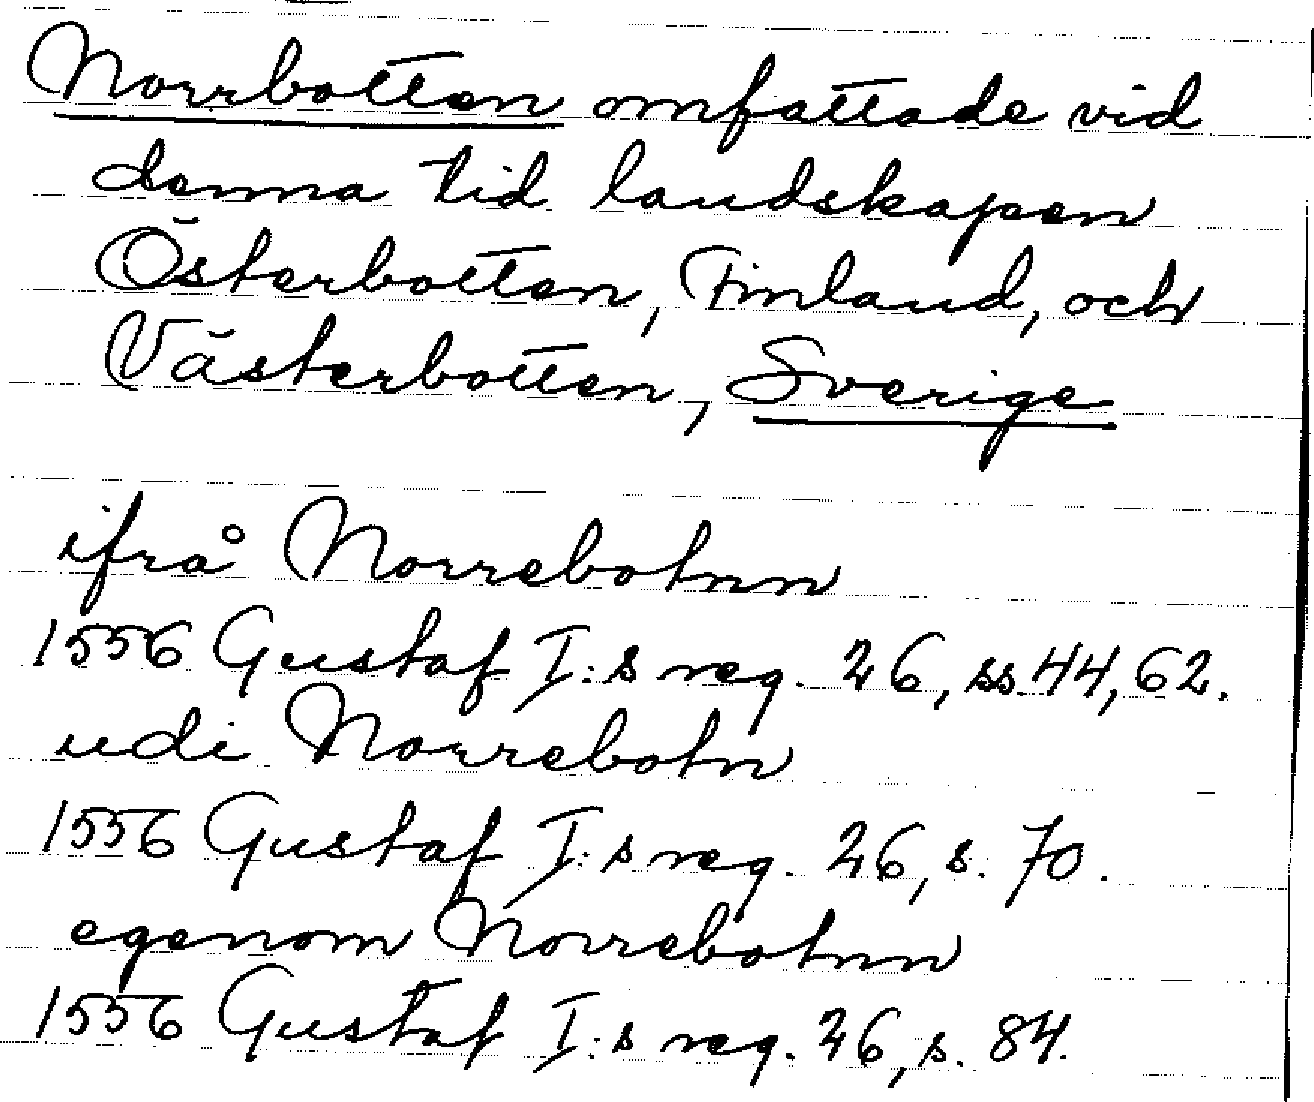 Norrbotten omfattade vid
denna tid landskapen
Österbotten, Finland, och
Västerbotten, Sverige
ifrå Norrebotnn
1556 Gustaf I:s reg. 26, ss. 44, 62.
udi Norrebotn
1556 Gustaf I:s reg. 26, s. 70.
egenom Norrebotnn
1556 Gustaf I:s reg. 26, s. 84.